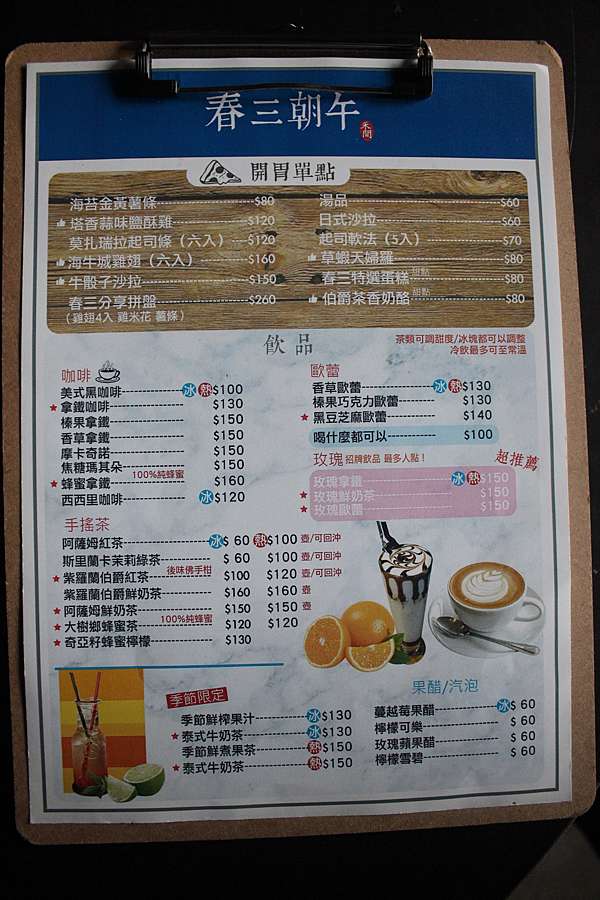 春三朝午 禾間
開胃單點
海苔金黃薯條 $80
塔香蒜味鹽酥雞 $120
莫扎瑞拉起司條（六入） $120
海牛城雞翅（六入） $160
牛骰子沙拉 $150
春三分享拼盤 $260
（雞翅4入 雞米花 薯條）
湯品 $60
日式沙拉 $60
起司軟法（5入） $70
草蝦天婦羅 $80
春三特選蛋糕 甜點 $80
伯爵茶香奶酪 甜點 $80
飲品
茶類可調甜度/冰塊都可以調整
冷飲最多可至常溫
咖啡
美式黑咖啡 冰 熱 $100
★ 拿鐵咖啡 $130
榛果拿鐵 $150
香草拿鐵 $150
摩卡奇諾 $150
焦糖瑪其朵 $150
★ 蜂蜜拿鐵 100%純蜂蜜 $160
西西里咖啡 冰 $120
歐蕾
香草歐蕾 冰 熱 $130
榛果巧克力歐蕾 $130
★ 黑豆芝麻歐蕾 $140
喝什麼都可以 $100
玫瑰 招牌飲品 最多人點！ 超推薦
玫瑰拿鐵 冰 熱 $150
★ 玫瑰鮮奶茶 $150
★ 玫瑰歐蕾 $150
手搖茶
阿薩姆紅茶 冰 $ 60 熱 $100 壺/可回沖
斯里蘭卡茉莉綠茶 $ 60 $100 壺/可回沖
★ 紫羅蘭伯爵紅茶 後味佛手柑 $100 $120 壺/可回沖
紫羅蘭伯爵鮮奶茶 $160 $160 壺
★ 阿薩姆鮮奶茶 $150 $150 壺
★ 大樹鄉蜂蜜茶 100%純蜂蜜 $120 $120
★ 奇亞籽蜂蜜檸檬 $130
季節限定
季節鮮榨果汁 冰 $130
★ 泰式牛奶茶 冰 $130
季節鮮煮果茶 熱 $150
★ 泰式牛奶茶 熱 $150
果醋/汽泡
蔓越莓果醋 冰 $ 60
檸檬可樂 $ 60
玫瑰蘋果醋 $ 60
檸檬雪碧 $ 60